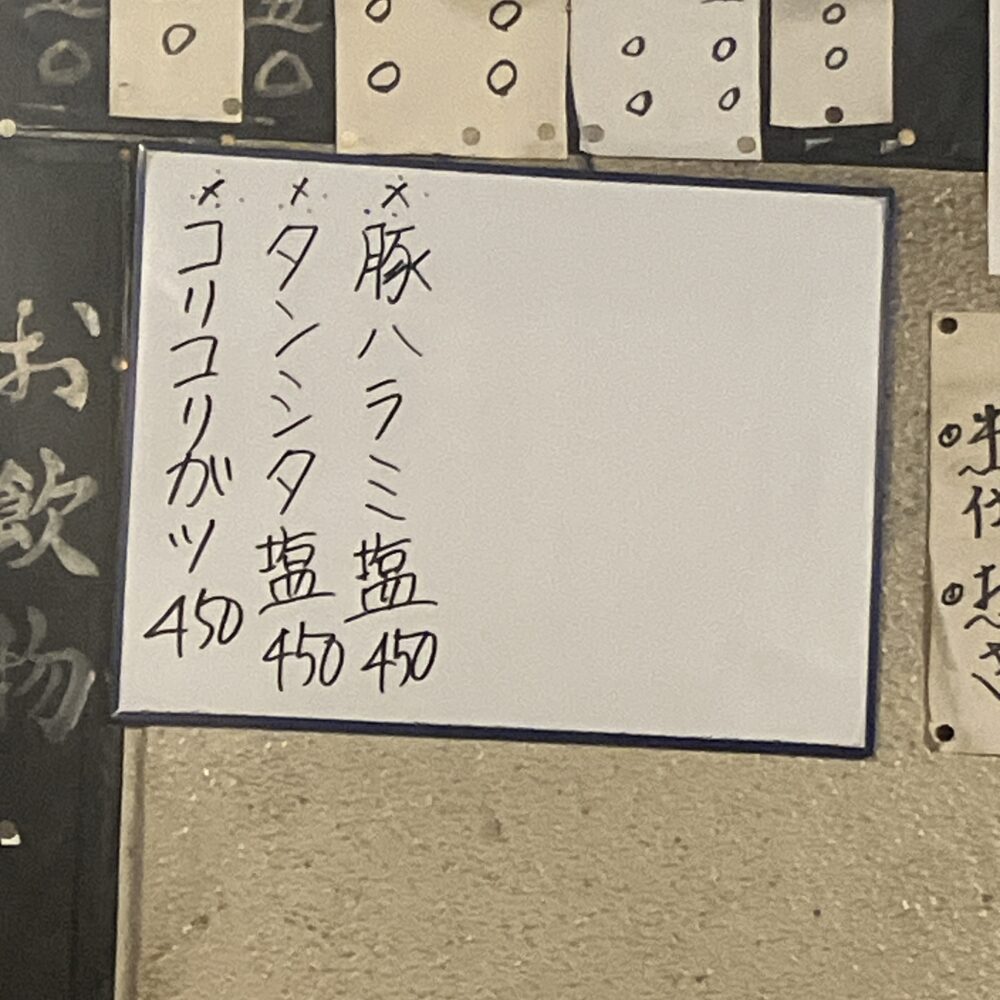 ※豚ハラミ塩450
※タンシタ塩450
※コリコリガツ450
お飲物